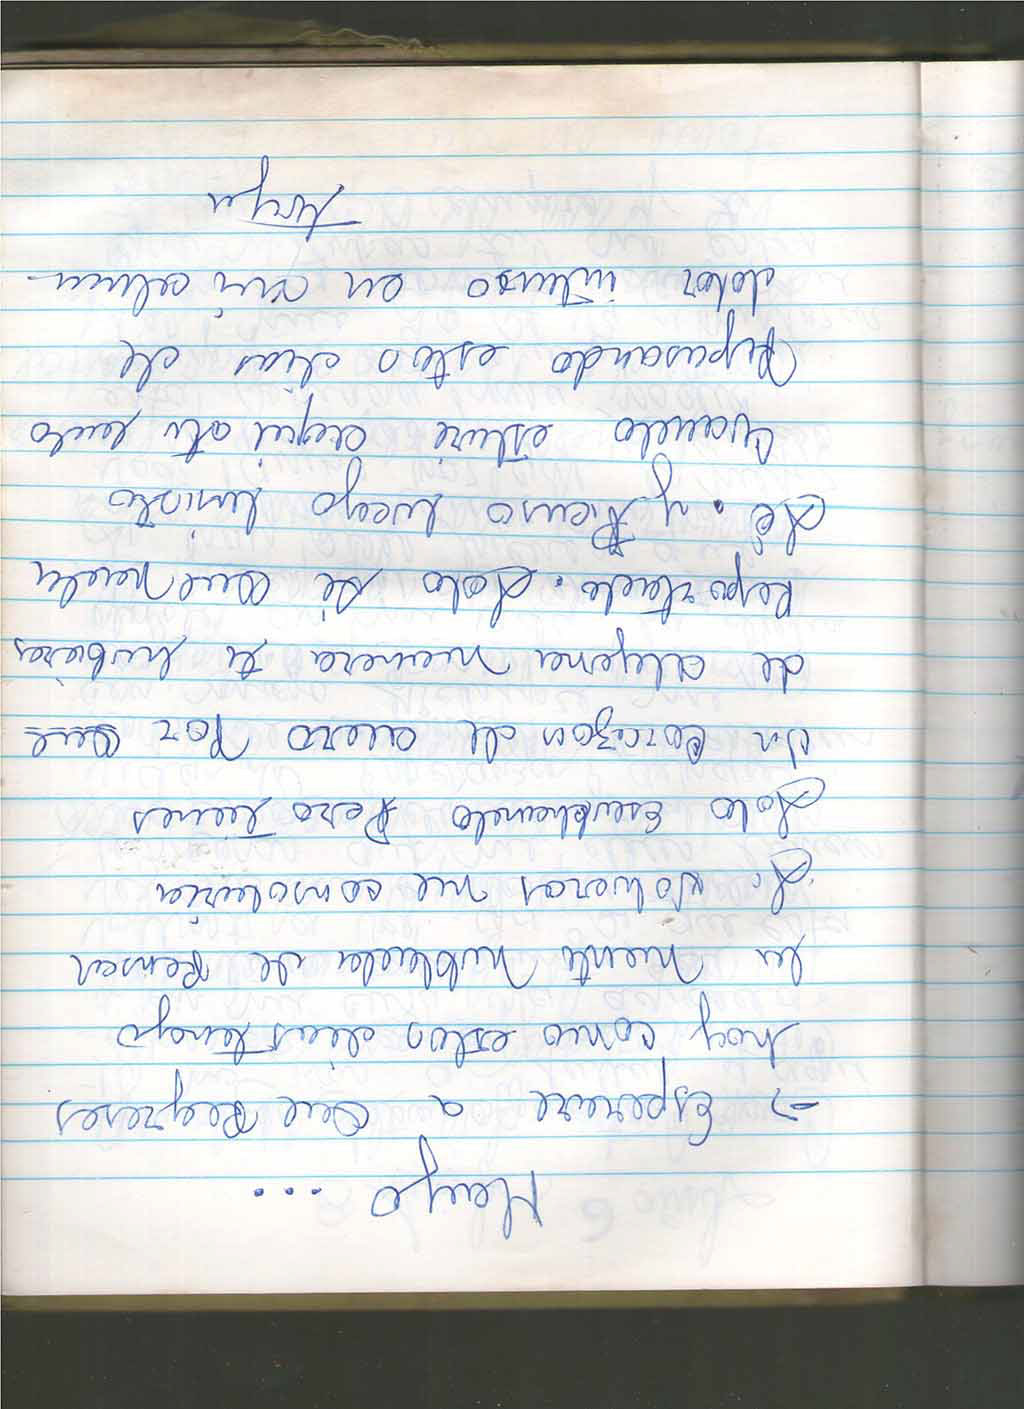 Mayo ...
-> Esperare a que Regreses
hoy como estos dias tengo
la mente nublada de Pensar
Si volveras me consolaria
Solo Escuchando Pero tienes
un corazon de acero Por que
de alguna manera te hubieras
Reportado. Solo se que nada
Sé. y Pienso luego existo
Cuando esture aqui atu lado
Repasando estos dias de
dolor intenso en mi alma.